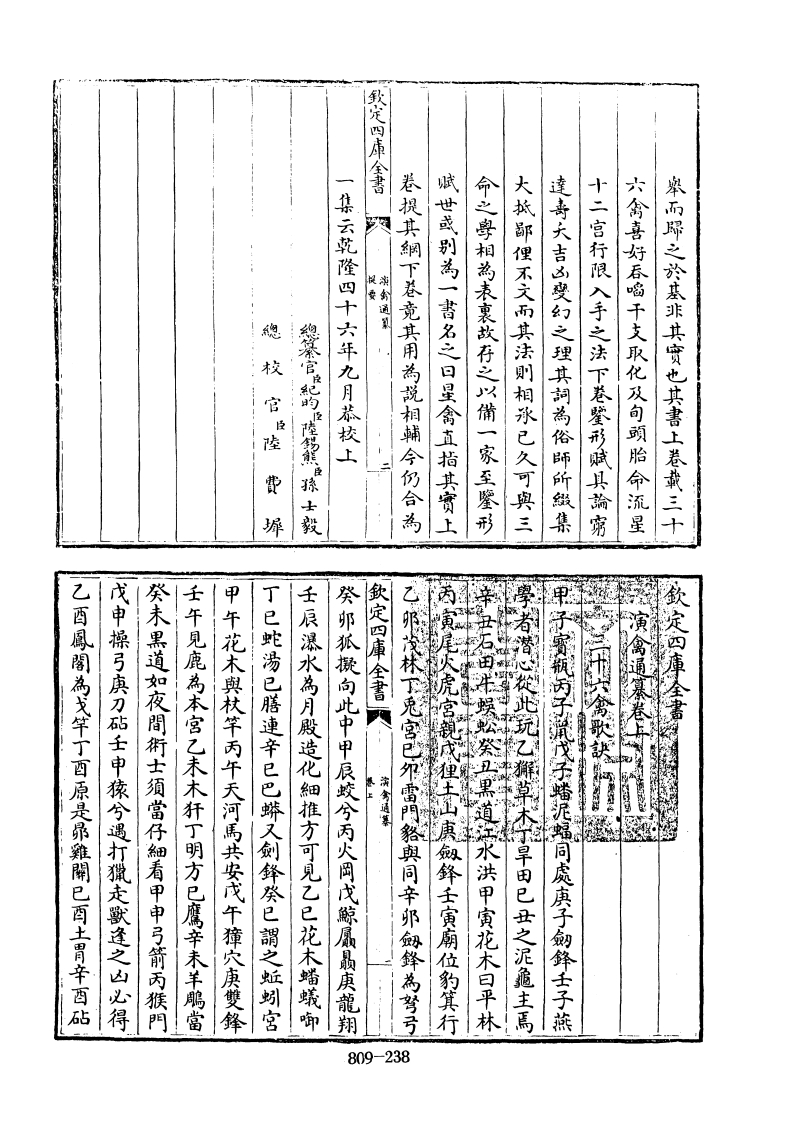 舉而歸之於基非其實也其書上卷載三十
六禽喜好吞啗干支取化及旬頭胎命流星
十二宮行限入手之法下卷鑒形賦具論窮
達壽夭吉凶變幻之理其詞為俗師所綴集
大抵鄙俚不文而其法則相承已久可與三
命之學相為表裏故存之以備一家至鑒形
賦世或别為一書名之曰星禽直指其實上
卷提其綱下卷竟其用為説相輔今仍合為
欽定四庫全書
演禽通纂
提要
二
一集云乾隆四十六年九月恭校上
總纂官臣紀昀臣陸錫熊臣孫士毅
總校官臣陸費墀
欽定四庫全書
演禽通纂卷上
三十六禽歌訣
甲子寶瓶丙子鼠戊子蟠泥蝠同處庚子劔鋒壬子燕
學者潛心從此玩乙獬草木丁旱田巳丑之泥龜主焉
辛丑石田牛蜈蚣癸丑黒道江水洪甲寅花木曰平林
丙寅尾火虎宮親戊狸土山庚劔鋒壬寅廟位豹箕行
乙卯茂林丁兎宮巳卯雷門貉與同辛卯劔鋒為弩弓
欽定四庫全書
演禽通纂
卷上
一
癸卯狐擬向此中甲辰蛟兮丙火岡戊鯨贔贔庚龍翔
壬辰瀑水為月殿造化細推方可見乙巳花木蟠蟻啣
丁巳蛇湯巳膳連辛巳巴蟒又劍鋒癸巳謂之蚯蚓宮
甲午花木與杖竿丙午天河馬共安戊午獐穴庚雙鋒
壬午見鹿為本宮乙未木犴丁明方巳鷹辛未羊鵰當
癸未黒道如夜間術士須當仔細看甲申弓箭丙猴門
戊申操弓庚刀砧壬申猿兮遇打獵走獸逢之凶必得
乙酉鳳閣為戈竿丁酉原是昴雞關巳酉土胃辛酉砧
809-238